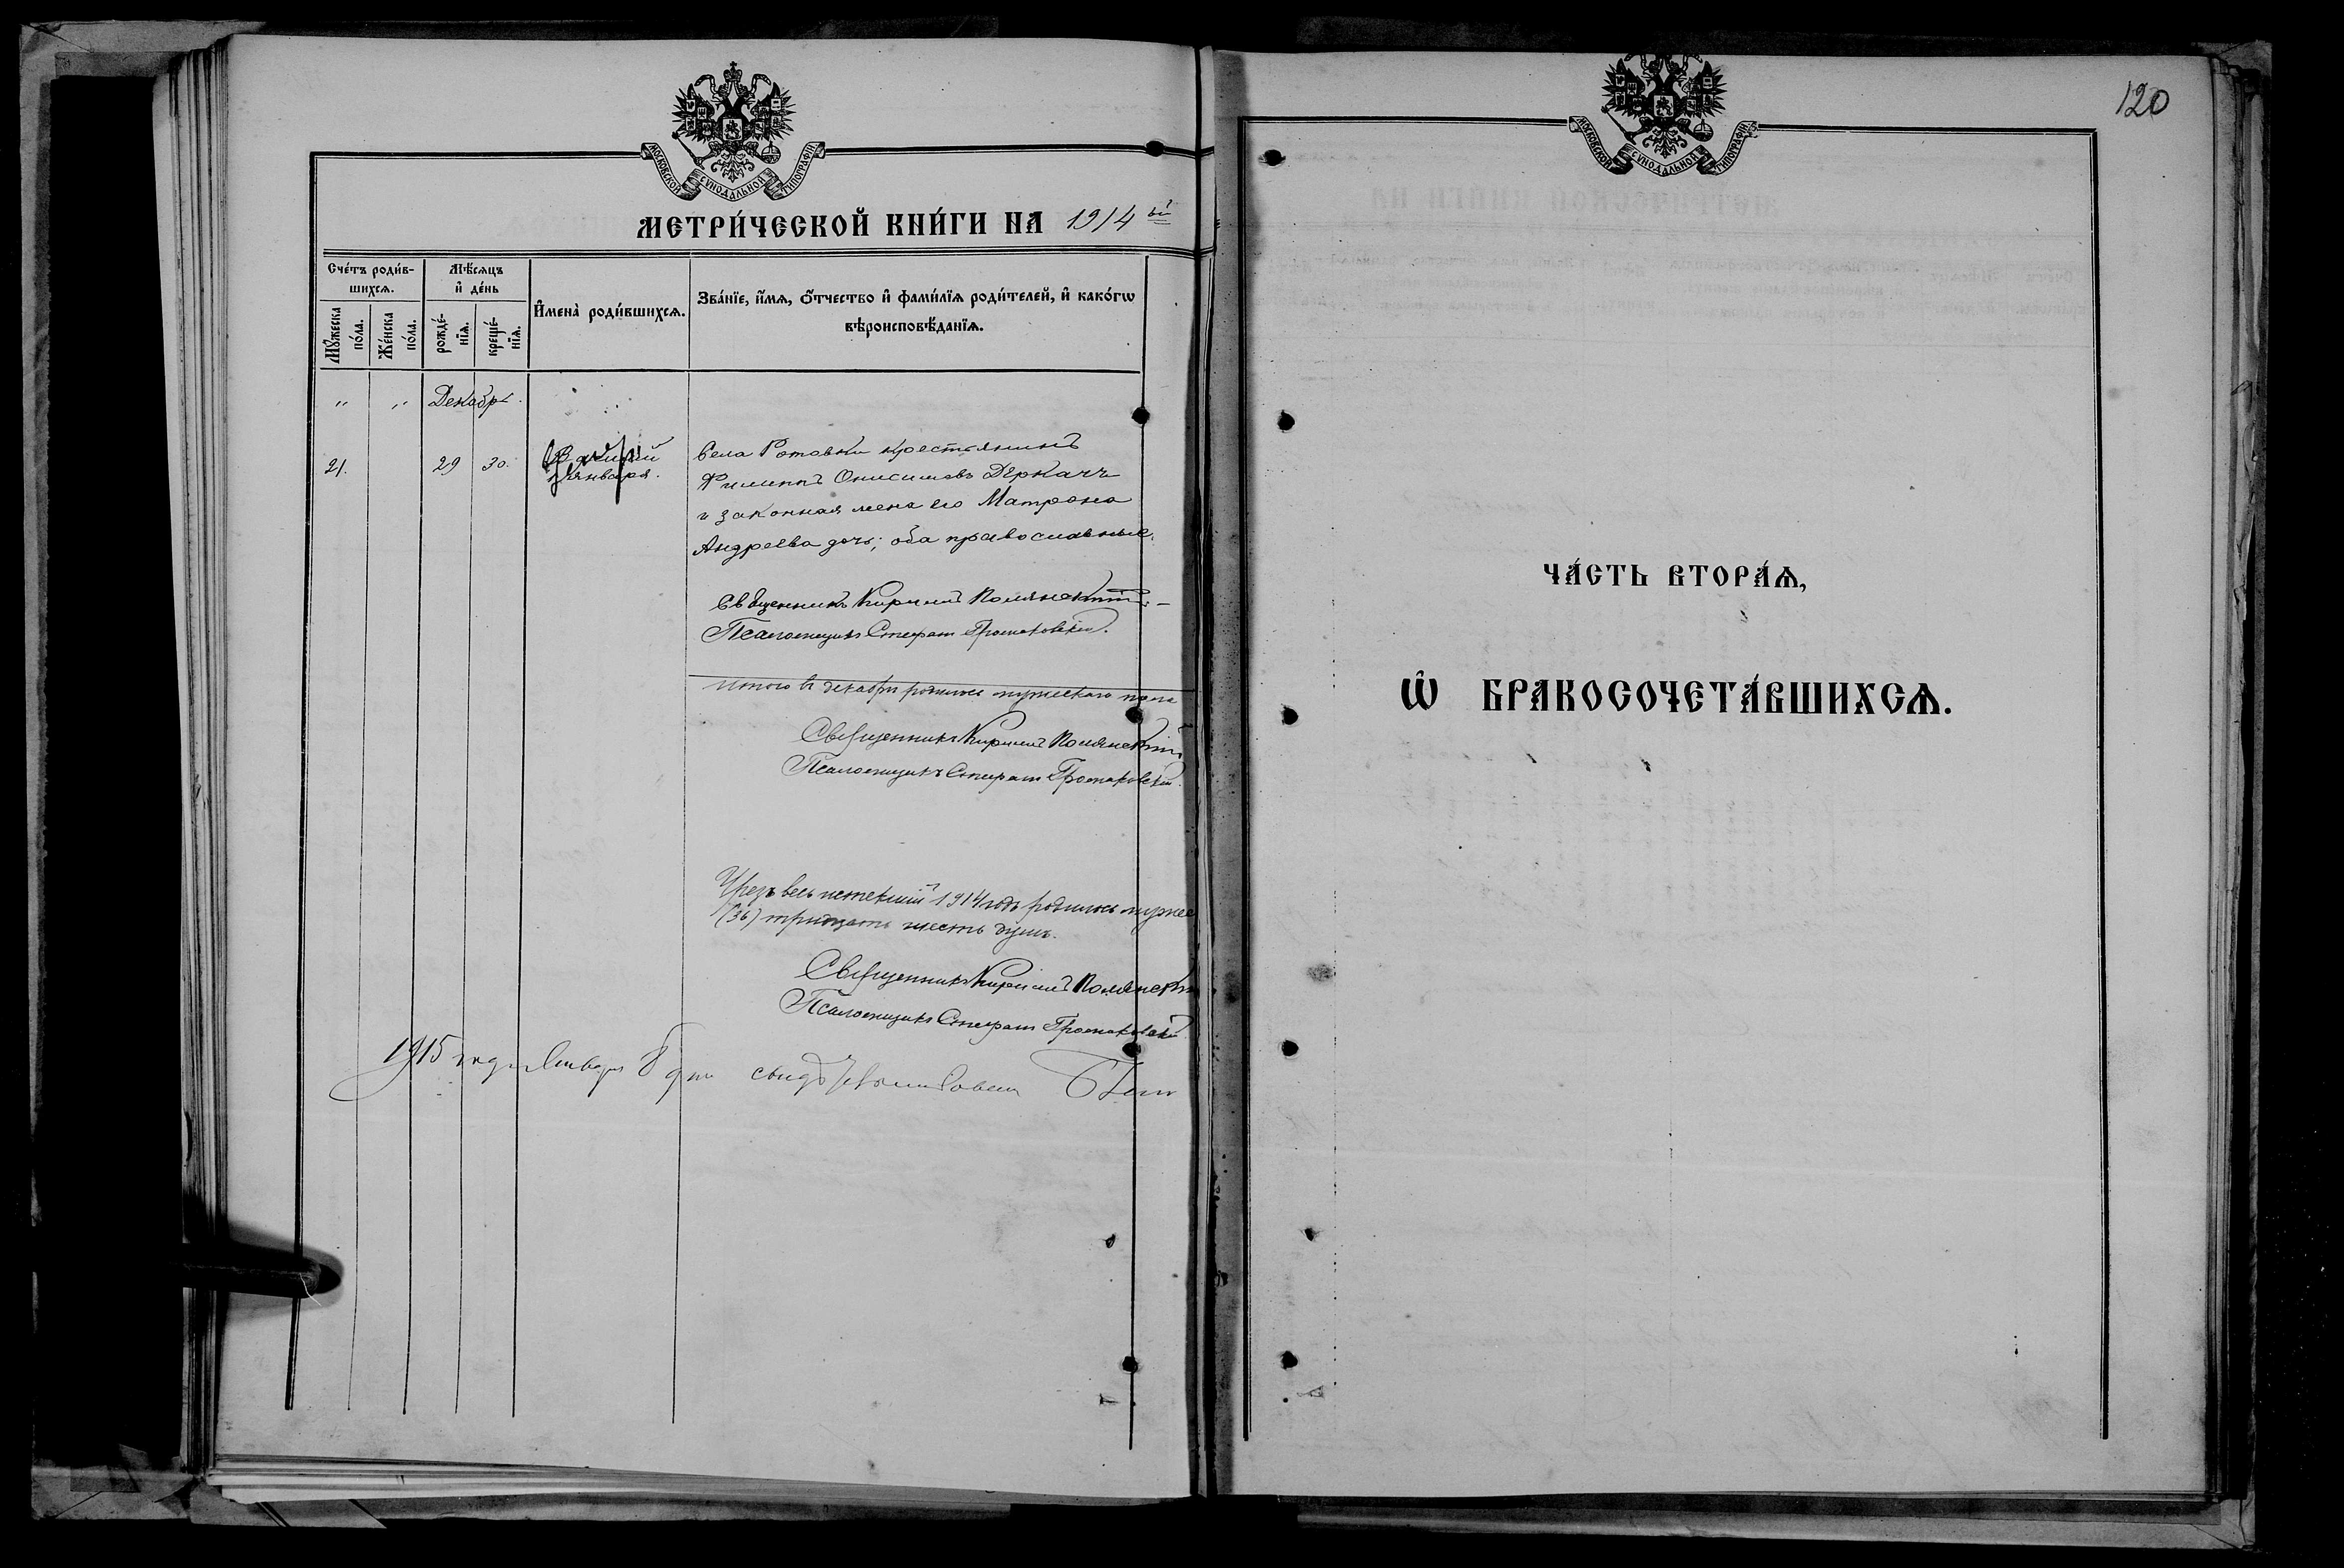 МОСКОВСКОЙ СѴНОДАЛЬНОЙ ТИПОГРАФІИ
МЕТРИ́ЧЕСКОЙ КНИ́ГИ НА 1914 ый
Сче́тъ роди́в-
шихсѧ.
Мꙋ́жеска
по́ла.
Же́нска
по́ла.
Мѣ́сѧцъ
и҆ де́нь
рожде́-
нїѧ.
креще́-
нїѧ.
И҆мена̀ роди́вшихсѧ.
Зва́нїе, и҆́мѧ, ѻ҆́тчество и҆ фами́лїѧ роди́телей, и҆ како́гѡ
вѣроисповѣ́данїѧ.
" " Декабрь.
21. 29 30.
Января.
Села Ротовки крестьянинъ
Филиппъ Онисимовъ Деркачъ
и законная жена его Матрона
Андреева дочь; оба православные.
Священникъ Кириллъ
Псаломщикъ Стефанъ
Итого въ декабрѣ родилось мужескаго пола
Священникъ Кириллъ
Псаломщикъ Стефанъ
Чрезъ весь истекшій 1914 годъ родилось мужес
(36) тридцать шесть душъ.
Священникъ Кириллъ
Псаломщикъ Стефанъ
1915 года Января 8 дня
120
МОСКОВСКОЙ СѴНОДАЛЬНОЙ ТИПОГРАФІИ
ЧА́СТЬ ВТОРА́Ѧ,
Ѡ҆ БРАКОСОЧЕТА́ВШИХСѦ.